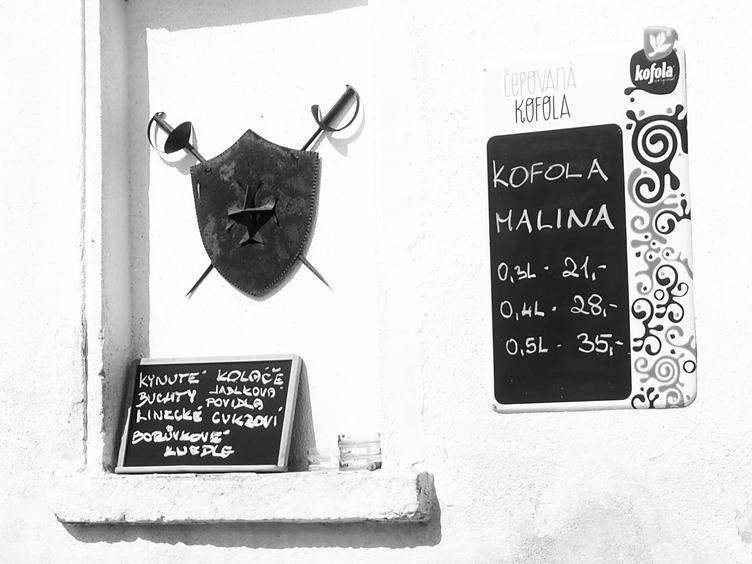 KYNUTÉ KOLÁČE
BUCHTY JABLKOVÁ
POVIDLA
LINECKÉ CUKROVÍ
BORŮVKOVÉ
KNEDLE
ČEPOVANÁ
KOFOLA
kofola
KOFOLA
MALINA
0,3L - 21,-
0,4L - 28,-
0,5L - 35,-